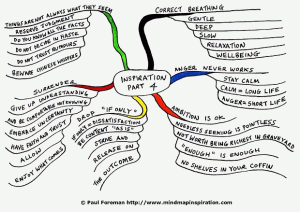 INSPIRATION
PART 4
THINGS ARE NOT ALWAYS WHAT THEY SEEM
RESERVE JUDGMENT
DO YOU KNOW ALL THE FACTS
DO NOT DECIDE IN HASTE
DO NOT TRUST RUMOURS
BEWARE CHINESE WHISPERS
CORRECT BREATHING
GENTLE
DEEP
SLOW
RELAXATION
WELLBEING
ANGER NEVER WORKS
STAY CALM
CALM = LONG LIFE
ANGER = SHORT LIFE
AMBITION IS OK
NEEDLESS SEEKING IS POINTLESS
NOT WORTH BEING RICHEST IN GRAVEYARD
"ENOUGH" IS ENOUGH
NO SHELVES IN YOUR COFFIN
DROP "IF ONLY"
IF ONLY = DISSATISFACTION
BE CONTENT "AS IS"
STRIVE AND
RELEASE ON
THE OUTCOME
SURRENDER
GIVE UP UNDERSTANDING
AND BE COMFORTABLE NOT KNOWING
EMBRACE UNCERTAINTY
HAVE FAITH AND TRUST
ALLOW
ENJOY WHAT COMES
© Paul Foreman http://www.mindmapinspiration.com